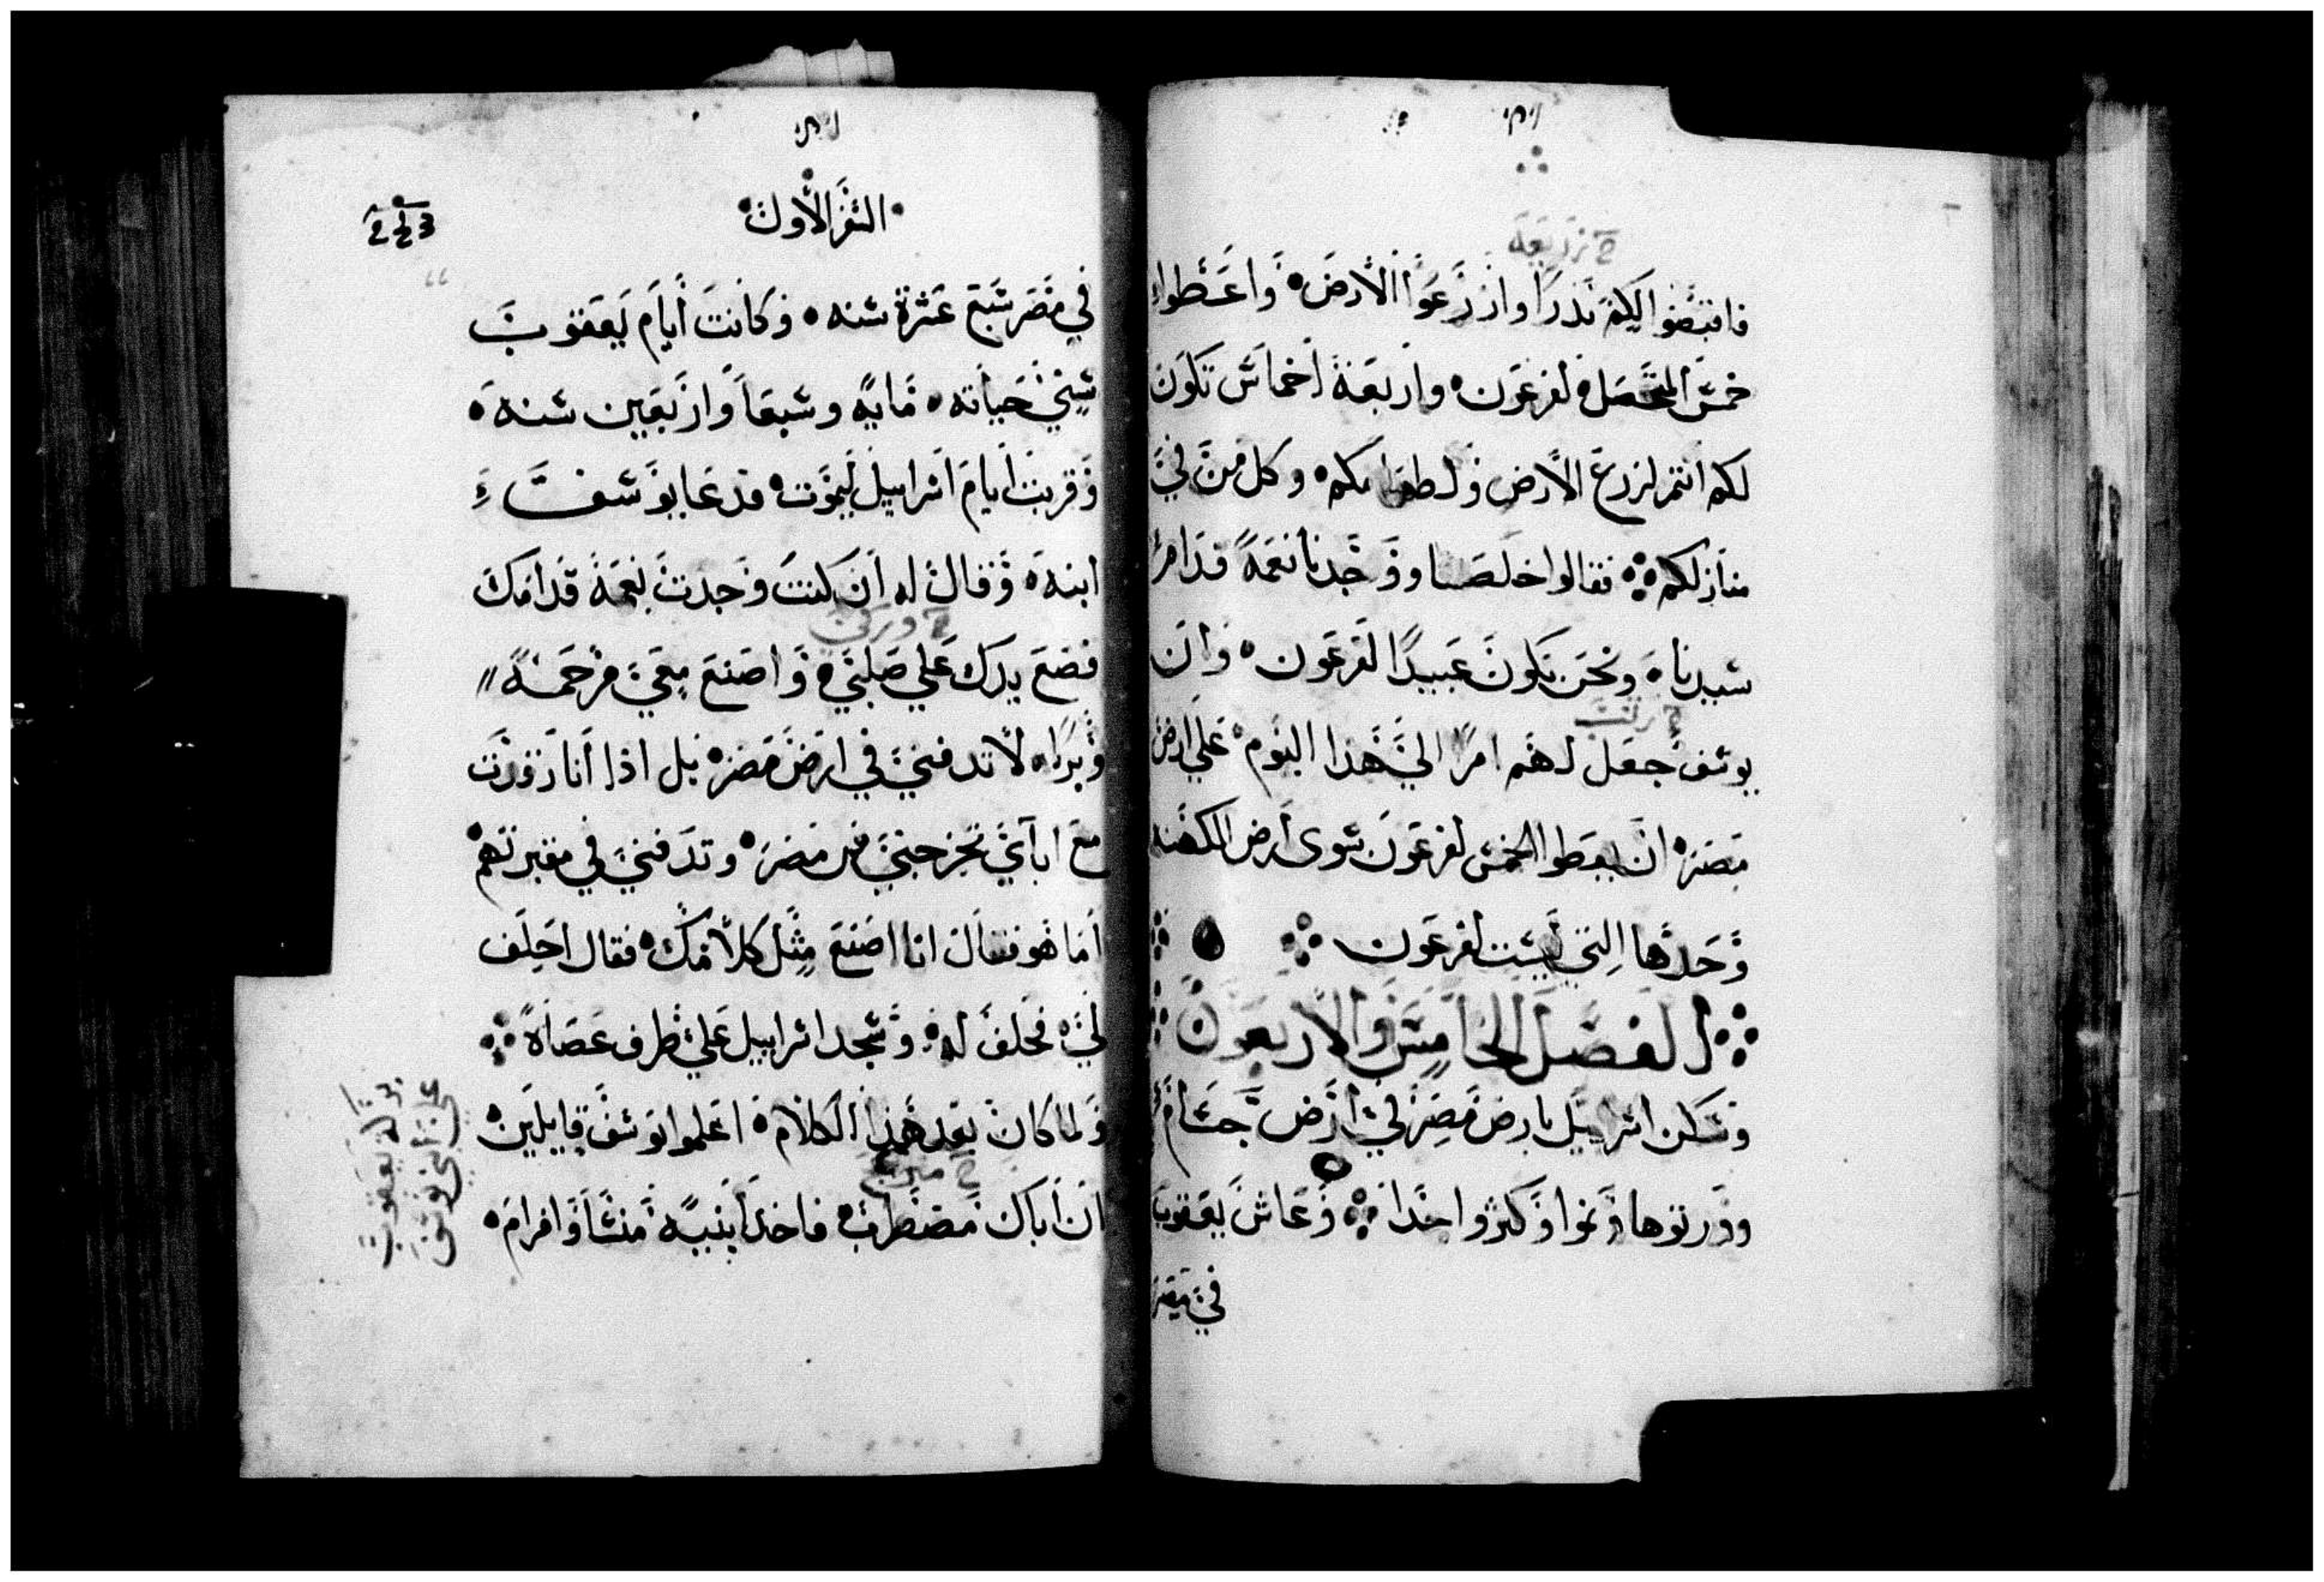 فاقبضوا اليكم بذرا وازرعوا الارض وَاعطوا
خمس المتحصل لفرعون واربعة اخماس تكون
لكم انتم لزرع الارض ولطعامكم وكل من في
منازلكم فقالوا خلصتنا ووجدنا نعمة قدام
سيدنا ونحن نكون عبيدا لفرعون وان
يوسف جعل لهم امرا الي هذا اليوم علي ارض
مصر ان يعطوا الخمس لفرعون سوى ارض الكهنه
وحدها التي ليست لفرعون
الفصل الخامس والاربعون
وسكن اسراييل بارض مصر في ارض جسام
وورثوها ونموا وكثروا جدا وعاش يعقوب
في مصر
السفر الاول
في مصر سبع عشرة سنه وكانت أيام يعقوب
سِني حياته مايه وسبعا واربعين سنه
وقربت ايام اسراييل ليموت فدعا يوسف
ابنه وقال له ان كنت وجدت نعمة قدامك
فضع يدك علي صلبي واصنع معي مرحمة
وبرا لا تدفني في ارض مصر بل اذا انا رقدت
مع ابآي تخرجني من مصر وتدفني في مقبرتهم
اما هو فقال انا اصنع مثل كلامك فقال احلف
لي فحلف له وسجد اسراييل علي طرف عصاه
ولما كان بعد هذا الكلام اعلموا يوسف قايلين
ان أباك مضطرب فاخذ ابنيه منسا وافرام